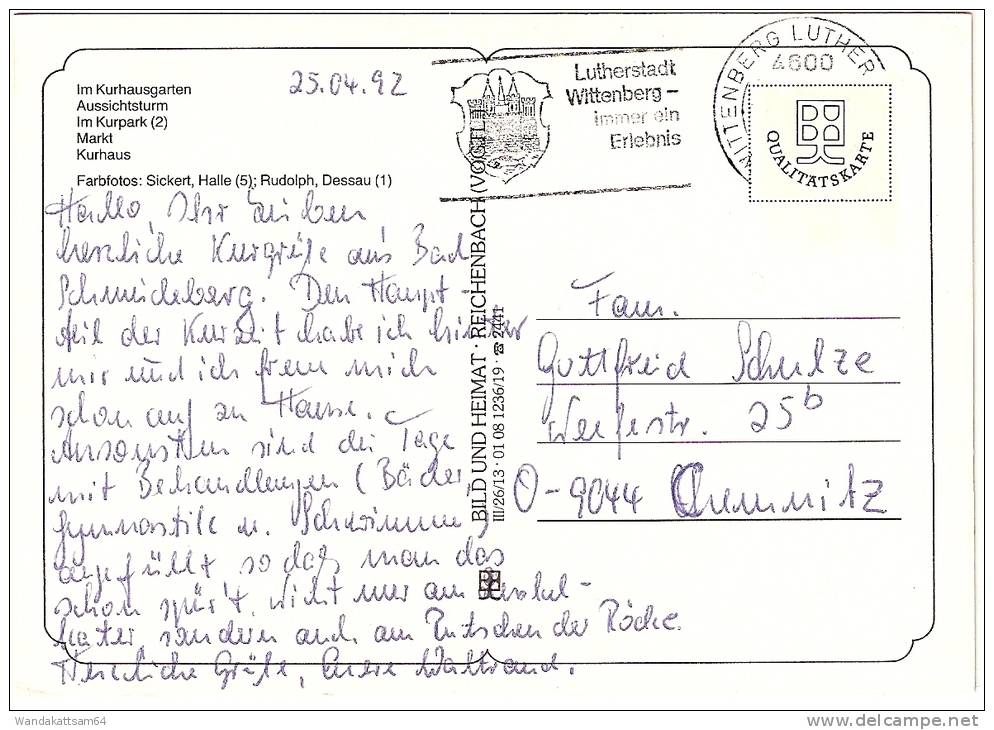 Im Kurhausgarten
Aussichtsturm
Im Kurpark (2)
Markt
Kurhaus
Farbfotos: Sickert, Halle (5); Rudolph, Dessau (1)
25.04.92
Hallo, Ihr Lieben
herzliche Kurgrüße aus Bad
Schmiedeberg. Den Haupt-
teil der Kurzeit habe ich hinter
mir und ich freue mich
schon auf zu Hause.
Ansonsten sind die Tage
mit Behandlungen (Bäder
Gymnastik u. Schwimmen)
angefüllt so daß man das
schon spürt. Nicht nur am Muskel-
kater, sondern auch am Rutschen der Röcke.
Herzliche Grüße, Eure Waltraud.
BILD UND HEIMAT · REICHENBACH (VOGTL)
III/26/13 · 01 08 1236/19 · ☎ 2441
Lutherstadt
Wittenberg –
immer ein
Erlebnis
WITTENBERG LUTHER
4600
QUALITÄTSKARTE
Fam.
Gottfried Schulze
25b
O-9044 Chemnitz
Wandakattsam64
delcampe.net